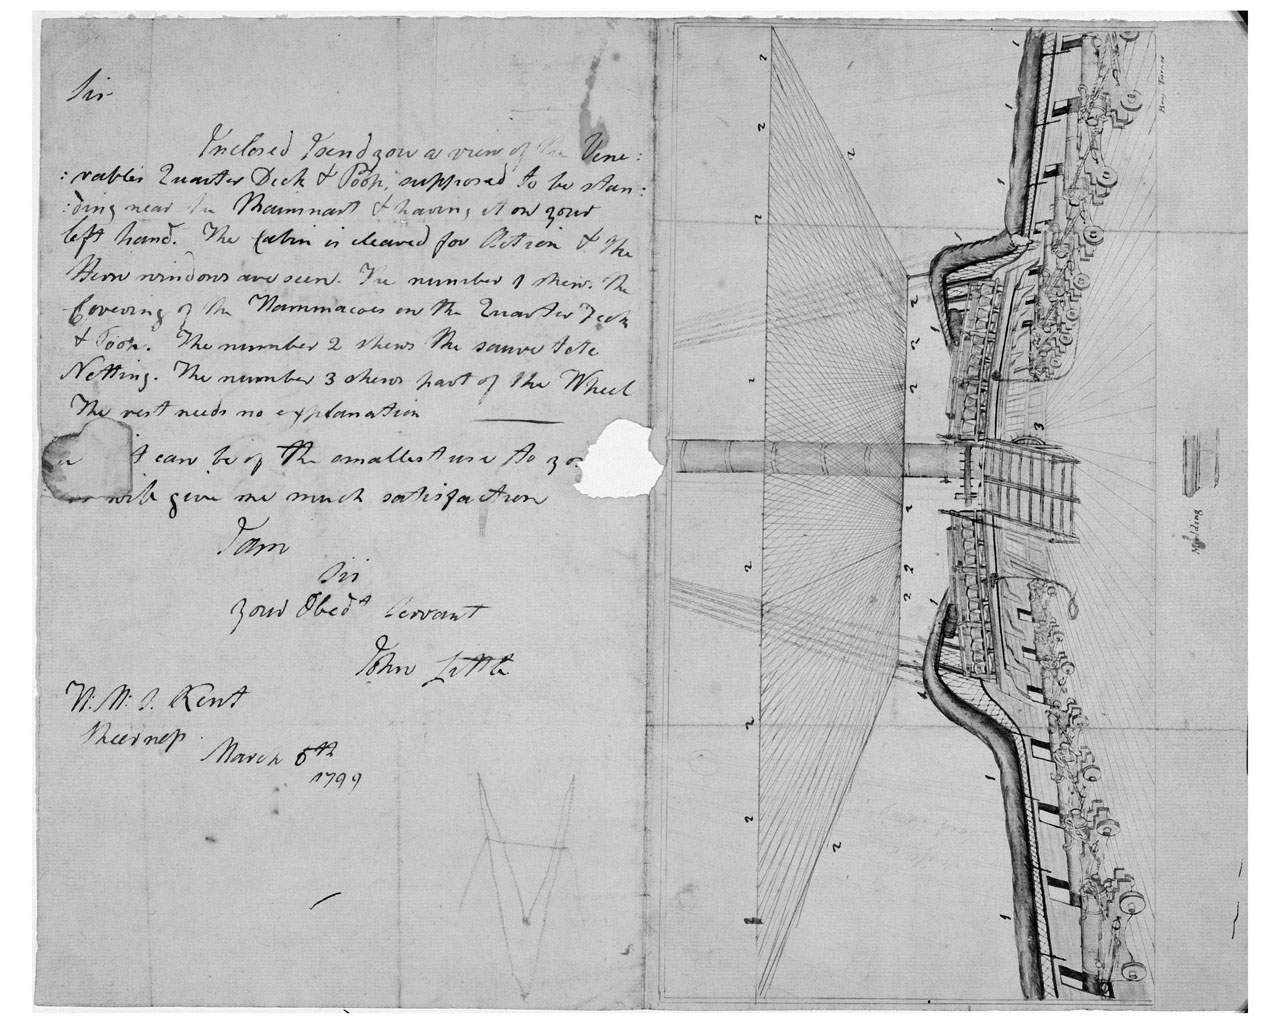 Sir
Inclosed I send you a view of the Vene:
:rables Quarter Deck & Poop, supposed to be stan:
:ding near the Mainmast & having it on your
left hand. The Cabin is cleared for Action & the
Stern windows are seen. The number 1 shews the
Covering of the Hammacoes on the Quarter Deck
& Poop. The number 2 shews the sauve tete
Netting. The number 3 shews part of the Wheel
The rest needs no explanation
it can be of the smallest use to yo
will give me much satisfaction
I am
Sir
your Obedt Servant
John Little
H: M: S. Kent
Sheerness
March 5th
1799
1
2
3
Moulding
Benj Turner